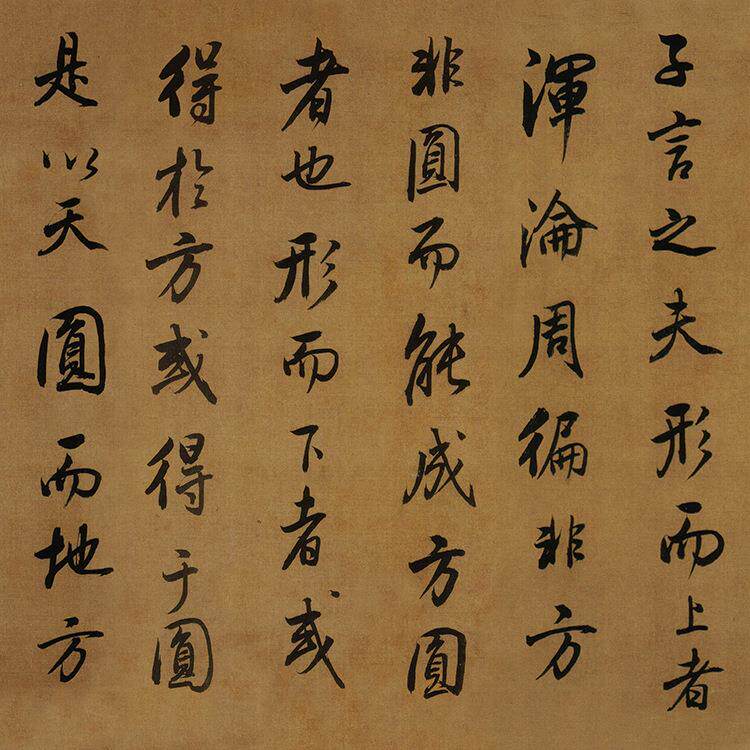 子言之夫形而上者
渾淪周徧非方
非圓而能成方圓
者也形而下者或
得於方或得于圓
是以天圓而地方